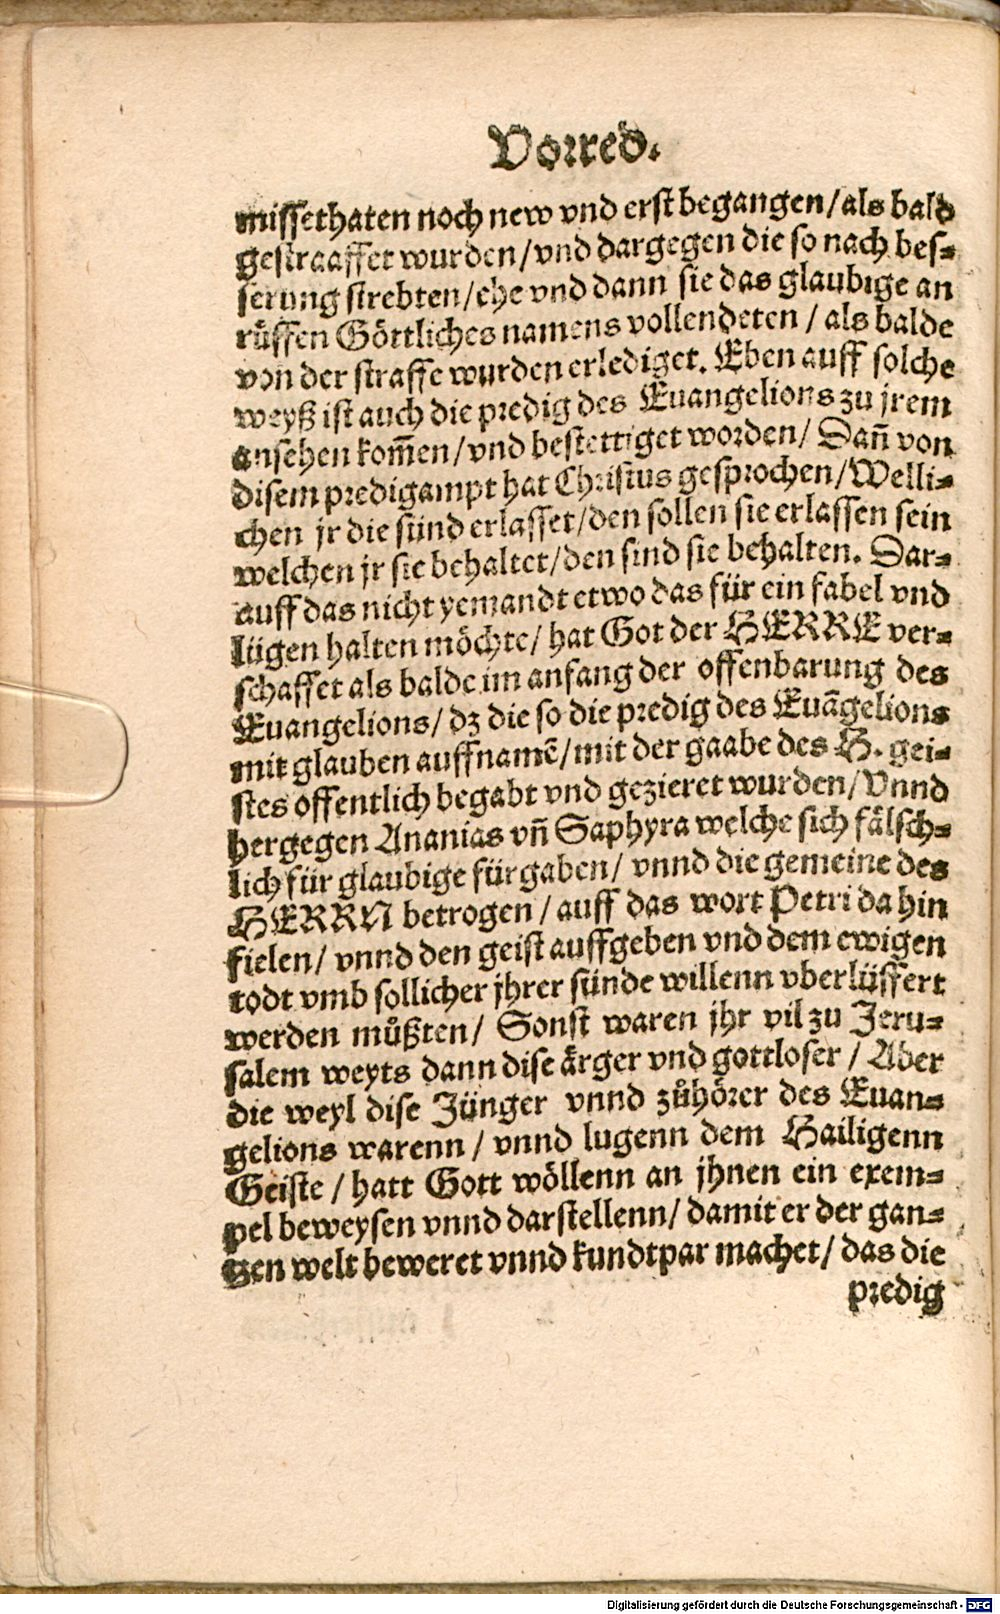 Vorred.
missethaten noch new vnd erst begangen/als bald
gestraaffet wurden/vnd dargegen die so nach bes-
serung strebten/ehe vnd dann sie das glaubige an
rüffen Göttliches namens vollendeten / als balde
von der straffe wurden erlediget. Eben auff solche
weyß ist auch die predig des Euangelions zu jrem
ansehen kom̄en/vnd bestettiget worden/ Dan̄ von
disem predigampt hat Christus gesprochen/Welli-
chen jr die sünd erlasset/den sollen sie erlassen sein
welchen jr sie behaltet/den sind sie behalten. Dar-
auff das nicht yemandt etwo das für ein fabel vnd
lügen halten möchte/ hat Got der HERRE ver-
schaffet als balde im anfang der offenbarung des
Euangelions/ dz die so die predig des Euāgelions
mit glauben auffnamē/mit der gaabe des H. gei-
stes offentlich begabt vnd gezieret wurden/Vnnd
hergegen Ananias vn̄ Saphyra welche sich fälsch-
lich für glaubige fürgaben/ vnnd die gemeine des
HERRN betrogen / auff das wort Petri da hin
fielen/ vnnd den geist auffgeben vnd dem ewigen
todt vmb sollicher jhrer sünde willenn vberlüffert
werden müßten/ Sonst waren jhr vil zu Jeru-
salem weyts dann dise ärger vnd gottloser / Aber
die weyl dise Jünger vnnd zůhörer des Euan-
gelions warenn / vnnd lugenn dem Hailigenn
Geiste / hatt Gott wöllenn an jhnen ein exem-
pel beweysen vnnd darstellenn/ damit er der gan-
tzen welt beweret vnnd kundtpar machet/ das die
predig
Digitalisierung gefördert durch die Deutsche Forschungsgemeinschaft - DFG